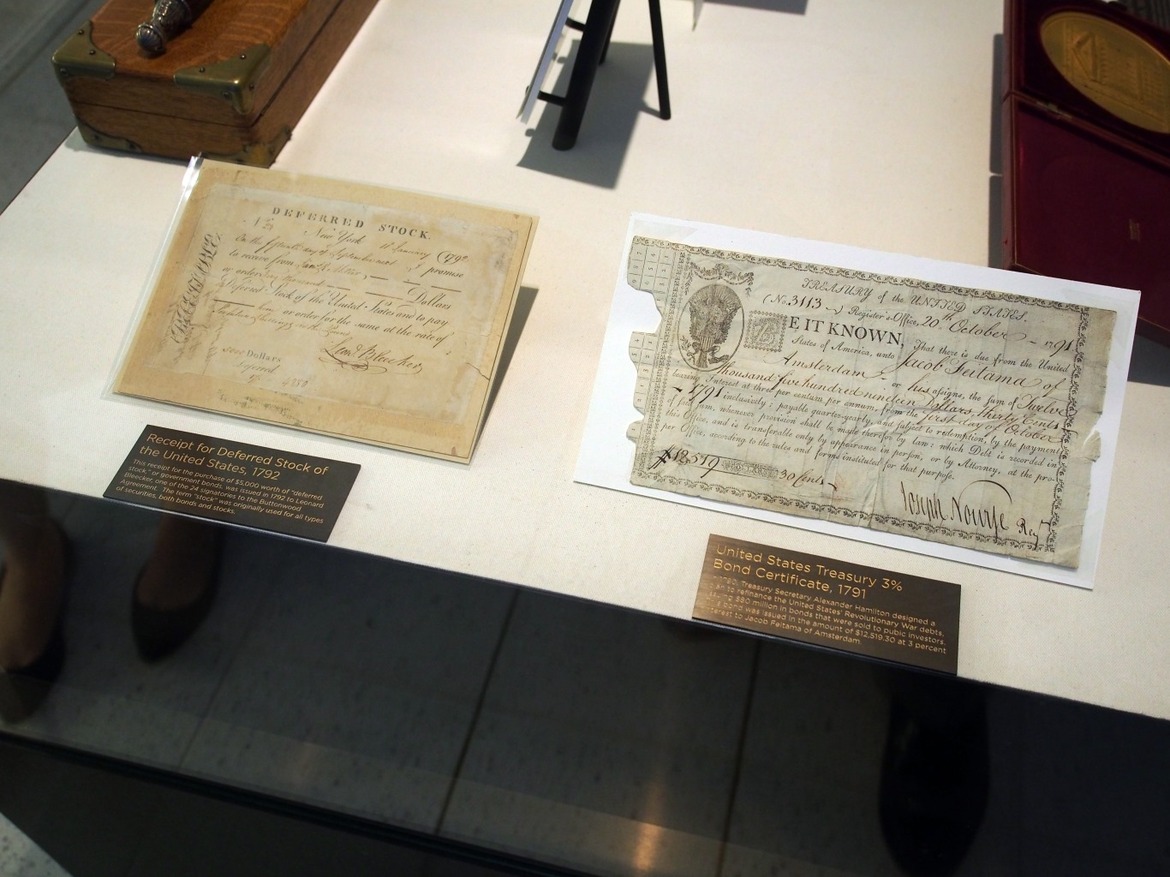 DEFERRED STOCK.
New York 11 January 1792
On the fifteenth day of September next I promise
to receive from
or order Dollars
Deferred Stock of the United States and to pay
or order for the same at the rate of
Leod Bleecker
5000 Dollars
Deferred
Receipt for Deferred Stock of
the United States, 1792
This receipt for the purchase of $5,000 worth of "deferred
stock," or government bonds, was issued in 1792 to Leonard
Bleecker, one of the 24 signatories to the Buttonwood
Agreement. The term "stock" was originally used for all types
of securities, both bonds and stocks.
TREASURY of the UNITED STATES.
(No. 3113 ) Register's Office, 20th October 1791
BE IT KNOWN, That there is due from the United
States of America, unto Jacob Feitama of
Amsterdam or his assigns, the sum of Twelve
Thousand five hundred nineteen Dollars thirty Cents
bearing Interest at three per centum per annum, from the first day of October
1791 inclusively; payable quarter-yearly, and subject to redemption, by the payment
of said sum, whenever provision shall be made therefor by law; which Debt is recorded in
this Office, and is transferable only by appearance in person, or by Attorney, at the pro-
per Office, according to the rules and forms instituted for that purpose.
$12519 30 Cents
Joseph Nourse Reg
United States Treasury 3%
Bond Certificate, 1791
1790, Treasury Secretary Alexander Hamilton designed a
plan to refinance the United States' Revolutionary War debts,
issuing $80 million in bonds that were sold to public investors.
bond was issued in the amount of $12,519.30 at 3 percent
interest to Jacob Feitama of Amsterdam.